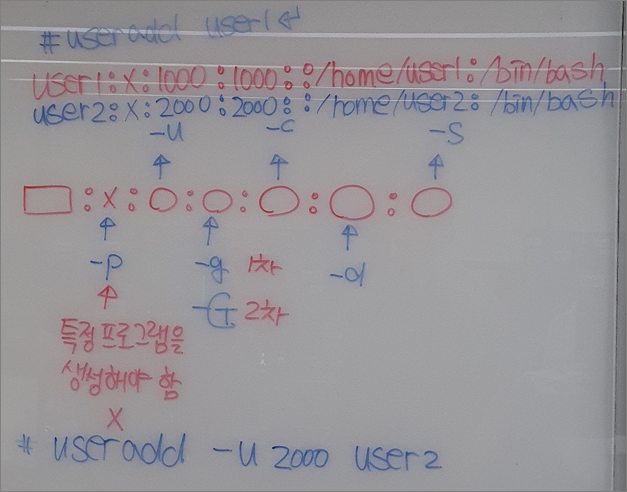 # useradd user1 ↵
user1:x:1000:1000::/home/user1:/bin/bash
user2:x:2000:2000::/home/user2:/bin/bash
-u -c -s
:x: : : : :
-p -g 1차 -d
-G 2차
특정프로그램을
생성해야 함
X
# useradd -u 2000 user2